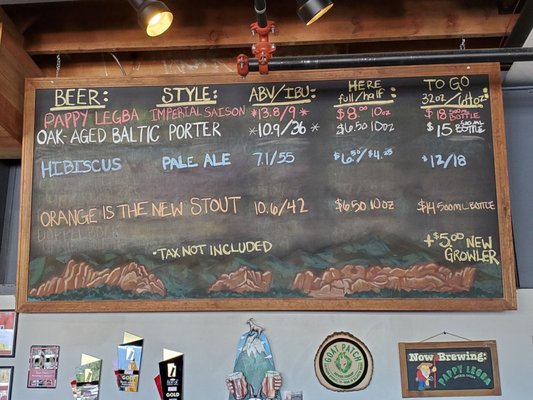 BEER: STYLE: ABV/IBU: HERE full/half: TO GO 32oz/64oz:
PAPPY LEGBA IMPERIAL SAISON *13.8/9* $8.00 10oz $18 500ML BOTTLE
OAK-AGED BALTIC PORTER *10.9/36* $6.50 10oz $15 500ML BOTTLE
HIBISCUS PALE ALE 7.1/55 $6.50/$4.25 $12/18
ORANGE IS THE NEW STOUT 10.6/42 $6.50 10oz $14 500ML BOTTLE
*TAX NOT INCLUDED
+$5.00 NEW
GROWLER
GOAT PATCH
NOW BREWING:
PAPPY LEGBA
IMPERIAL SAISON
GOLD